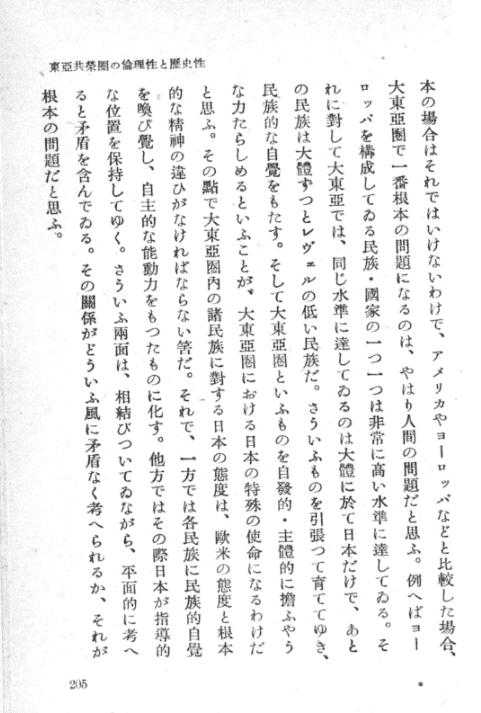 東亞共榮圈の倫理性と歷史性
本の場合はそれではいけないわけで、アメリカやヨーロッパなどと比較した場合、
大東亞圈で一番根本の問題になるのは、やはり人間の問題だと思ふ。例へばヨー
ロッパを構成してゐる民族・國家の一つ一つは非常に高い水準に達してゐる。そ
れに對して大東亞では、同じ水準に達してゐるのは大體に於て日本だけで、あと
の民族は大體ずつとレヴェルの低い民族だ。さういふものを引張つて育ててゆき、
民族的な自覺をもたす。そして大東亞圈といふものを自發的・主體的に擔ふやう
な力たらしめるといふことが、大東亞圈における日本の特殊の使命になるわけだ
と思ふ。その點で大東亞圈內の諸民族に對する日本の態度は、歐米の態度と根本
的な精神の違ひがなければならない筈だ。それで、一方では各民族に民族的自覺
を喚び覺し、自主的な能動力をもつたものに化す。他方ではその際日本が指導的
な位置を保持してゆく。さういふ兩面は、相結びついてゐながら、平面的に考へ
ると矛盾を含んでゐる。その關係がどういふ風に矛盾なく考へられるか、それが
根本の問題だと思ふ。
205